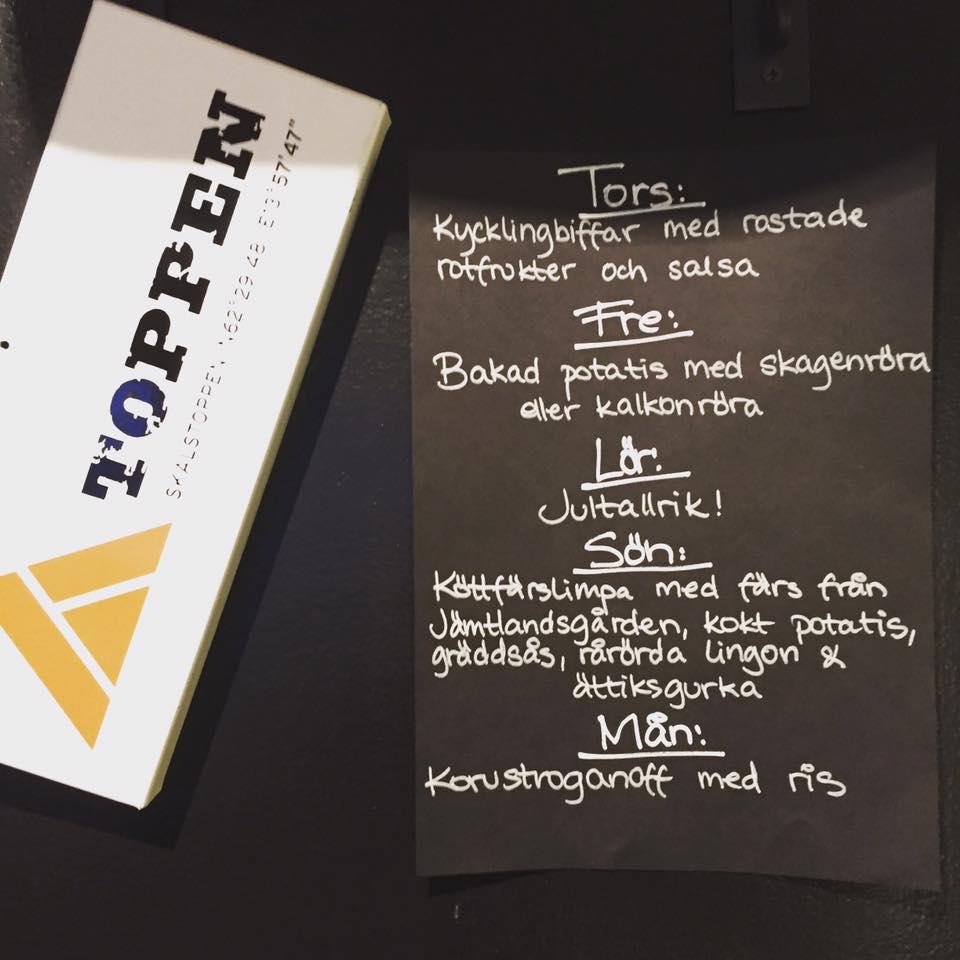 TOPPEN
SKALSTOPPEN N62°29'48" E13°57'47"
Tors:
Kycklingbiffar med rostade
rotfrukter och salsa
Fre:
Bakad potatis med skagenröra
eller kalkonröra
Lör:
Jultallrik!
Sön:
Köttfärslimpa med färs från
Jämtlandsgården, kokt potatis,
gräddsås, rårörda lingon &
ättiksgurka
Mån:
Korvstroganoff med ris